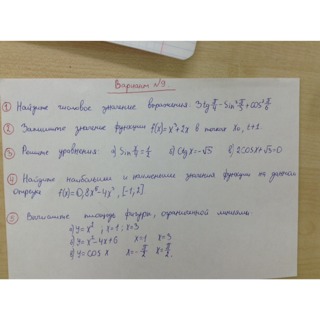 Вариант №9
① Найдите числовое значение выражения: 3tg π/4 - Sin² π/3 + cos² π/6
② Запишите значение функции f(x)=x²+2x в точках x₀, t+1.
③ Решите уравнения а) Sin x/4 = 1/2 б) Ctg x=-√3 в) 2COSX+√3=0
④ Найдите наибольшее и наименьшее значения функции на данном
отрезке f(x)=0,8x⁵-4x³, [-1,2]
⑤ Вычислите площадь фигуры, ограниченной линиями
а) y=x² ; x=1; x=3
б) y=x²-4x+6 x=1 x=3
в) y=cos x x=-π/2 x=π/2.